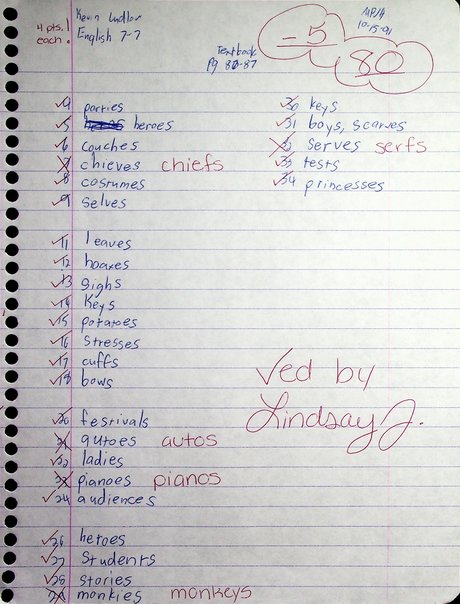 4 pts. each.
Kevin Ludlow
English 7-7
Textbook
Pg 86-87
10-15-01
-5
80
4 parties
5 heroes
6 couches
7 chieves chiefs
8 costumes
9 selves
11 leaves
12 hoaxes
13 sighs
14 Keys
15 potatoes
16 stresses
17 cuffs
18 bows
20 festivals
21 autoes autos
22 ladies
23 pianoes pianos
24 audiences
26 heroes
27 Students
28 stories
29 monkies monkeys
30 keys
31 boys, scarves
32 serves serfs
33 tests
34 princesses
✓ed by
Lindsay J.